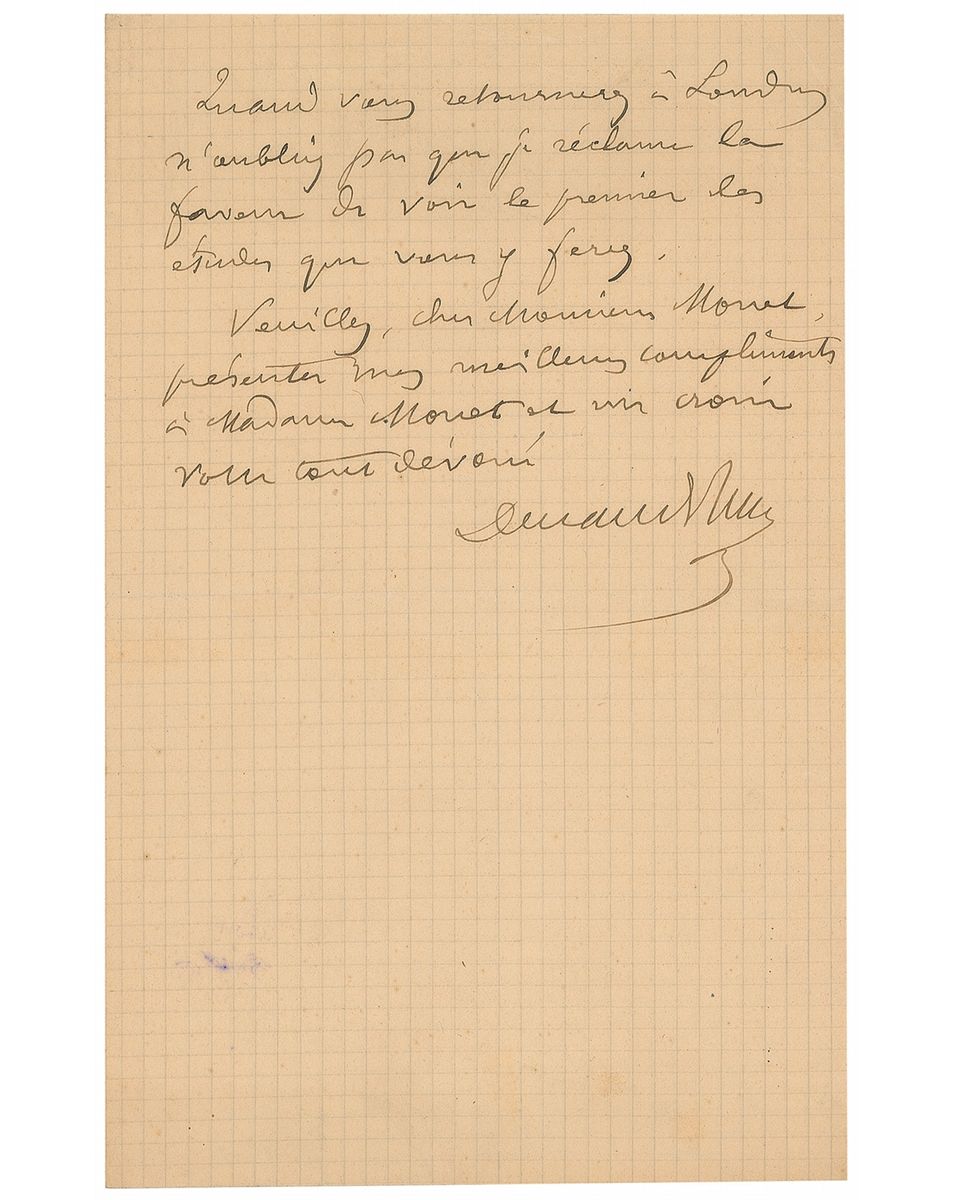 Quand vous retournerez à Londres
n'oubliez pas que je réclame la
faveur de voir le premier les
études que vous y ferez.
Veuillez, cher Monsieur Monet,
présenter mes meilleurs compliments
à Madame Monet et me croire
votre tout dévoué
Durand Ruel